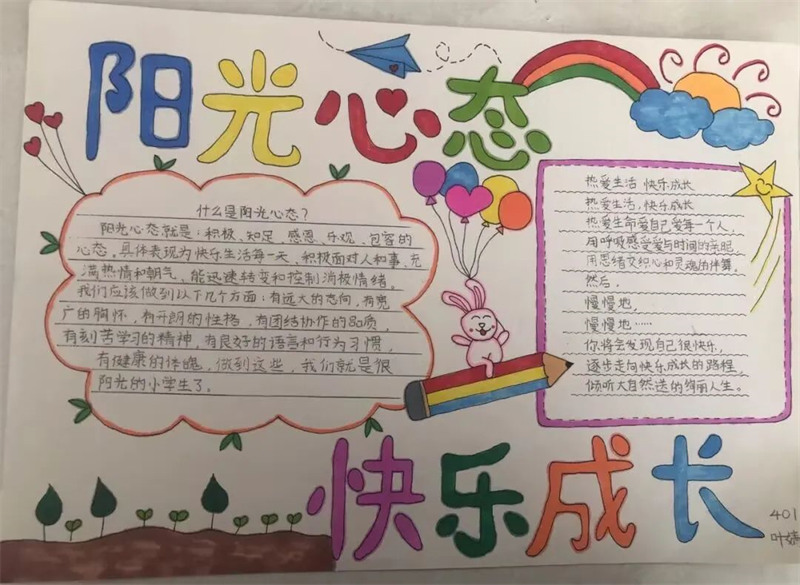 阳光心态
什么是阳光心态?
阳光心态就是:积极、知足、感恩、乐观、包容的
心态,具体表现为快乐生活每一天、积极面对人和事、充
满热情和朝气、能迅速转变和控制消极情绪。
我们应该做到以下几个方面:有远大的志向,有宽
广的胸怀,有开朗的性格,有团结协作的品质,
有刻苦学习的精神,有良好的语言和行为习惯,
有健康的体魄,做到这些,我们就是很
阳光的小学生了。
热爱生活 快乐成长
热爱生活,快乐成长
热爱生命爱自己爱每一个人,
用呼吸感受爱与时间的亲昵
用思绪交织心和灵魂的伴舞。
然后,
慢慢地,
慢慢地……
你将会发现自己很快乐,
逐步走向快乐成长的路程,
倾听大自然送的绚丽人生。
快乐成长
401
叶